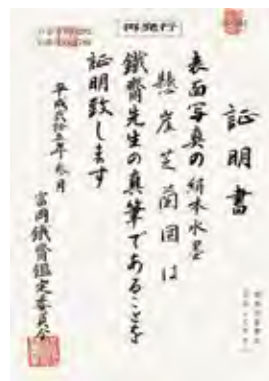 再発行
証明書
表面写真の絹本水墨
懸崖芝蘭図は
鐵齋先生の真筆であることを
証明致します
平成弐拾五年 月
富岡鐵齋鑑定委員会